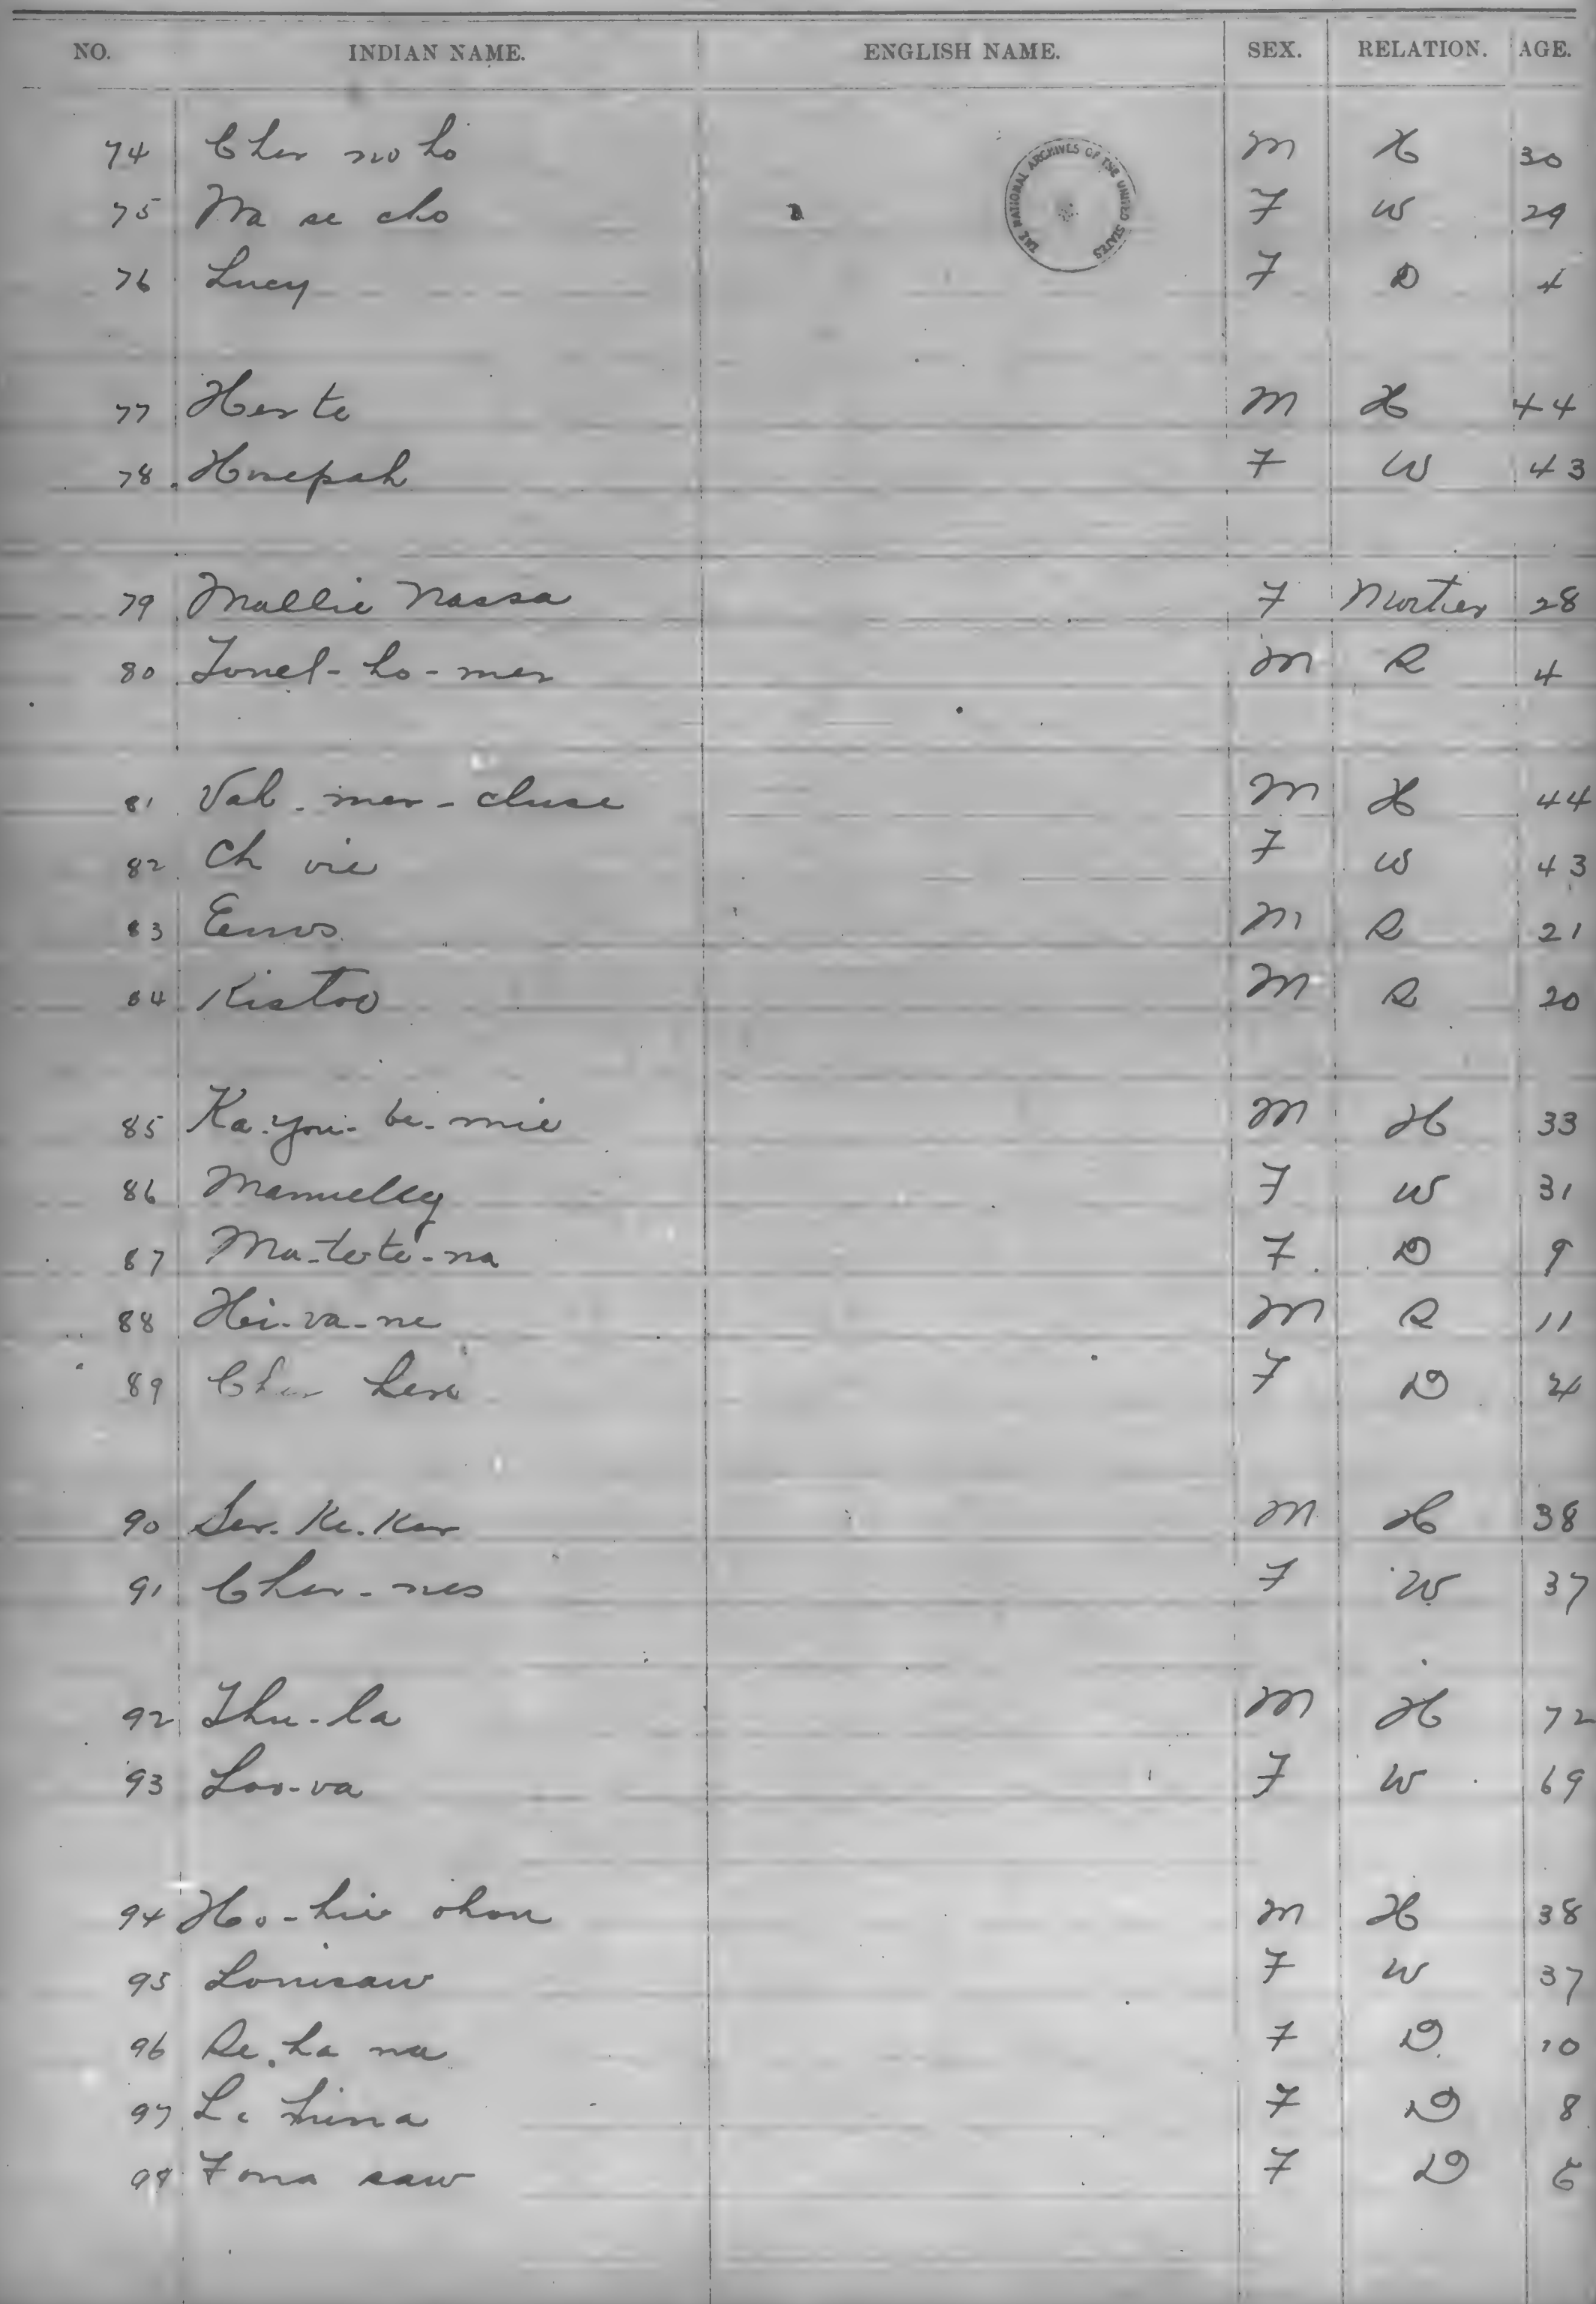 NO. INDIAN NAME. ENGLISH NAME. SEX. RELATION. AGE.
THE NATIONAL ARCHIVES OF THE UNITED STATES
74 Cher no ho M H 30
75 Ma se cho F W 29
76 Lucy F D 4
77 Her te M H 44
78 Hosepah F W 43
79 Mollie Nassa F Mother 28
80 Tonel-ho-mer M S 4
81 Vah-mer-chuse M H 44
82 Ch vie F W 43
83 Enos M S 21
84 Kistoo M S 20
85 Ka-you-be-mie M H 33
86 Manuelly F W 31
87 Ma-te-te-na F D 9
88 Hei-va-ne M S 11
89 Cher here F D 4
90 Ser-Ke-Ker M H 38
91 Cher-nes F W 37
92 Thu-la M H 72
93 Loo-va F W 69
94 Ho-hie ohon M H 38
95 Louisaw F W 37
96 Re-ha na F D 10
97 Le F D 8
98 Fona saw F D 6